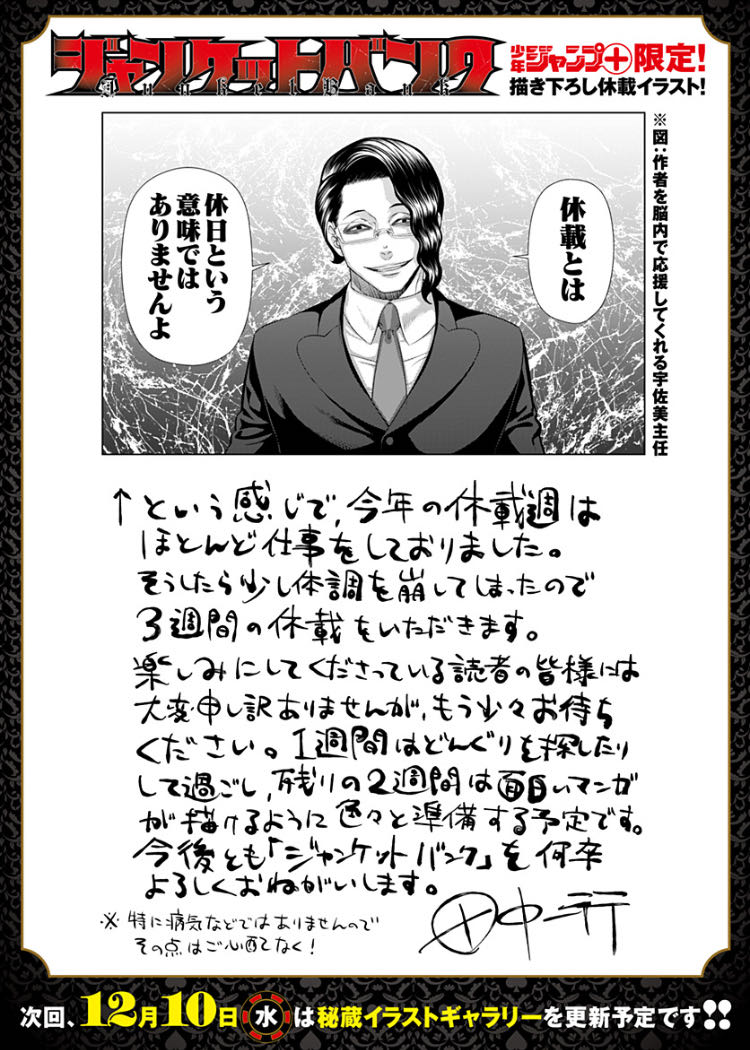 ジャンケットバンク
Junket Bank
少年ジャンプ＋限定！
描き下ろし休載イラスト！
※図：作者を脳内で応援してくれる宇佐美主任
休載とは
休日という
意味では
ありませんよ
↑という感じで、今年の休載週は
ほとんど仕事をしておりました。
そうしたら少し体調を崩してしまったので
3週間の休載をいただきます。
楽しみにしてくださっている読者の皆様には
大変申し訳ありませんが、もう少々お待ち
ください。1週間はどんぐりを探したり
して過ごし、残りの2週間は面白いマンガ
が描けるように色々と準備する予定です。
今後とも「ジャンケットバンク」を何卒
よろしくおねがいします。
田中一行
※特に病気などではありませんので
その点はご心配なく！
次回、12月10日水は秘蔵イラストギャラリーを更新予定です!!